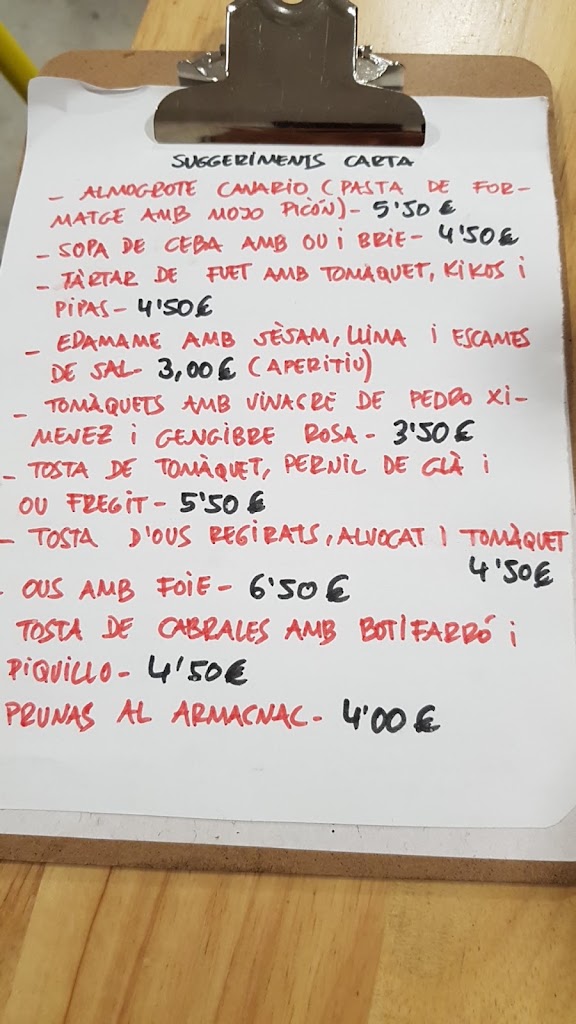 SUGGERIMENTS CARTA
- ALMOGROTE CANARIO (PASTA DE FOR-
MATGE AMB MOJO PICÓN) - 5'50 €
- SOPA DE CEBA AMB OU I BRIE - 4'50€
- TÀRTAR DE FUET AMB TOMÀQUET, KIKOS i
PIPAS - 4'50€
- EDAMAME AMB SÈSAM, LLIMA i ESCAMES
DE SAL - 3,00€ (APERITIU)
- TOMÀQUETS AMB VINAGRE DE PEDRO XI-
MENEZ i GENGIBRE ROSA - 3'50€
- TOSTA DE TOMÀQUET, PERNIL DE GLÀ i
OU FREGIT - 5'50€
- TOSTA D'OUS REGIRATS, ALVOCAT I TOMÀQUET
4'50€
- OUS AMB FOIE - 6'50€
TOSTA DE CABRALES AMB BOTIFARRÓ i
PIQUILLO - 4'50€
PRUNAS AL ARMAGNAC - 4'00€